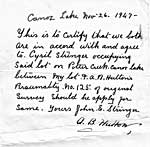 Canoe Lake Nov-26. 1947-
This is to Certify that we both
are in accord with and agree
to Cyril Stringer occupying
Said lot on Peter Cuck. Canoe Lake
between My lot & A.B. Hutton's
Presumably No. 125 of original
Survey Should he apply for
Same. Yours John S. Stringer
A. B. Hutton